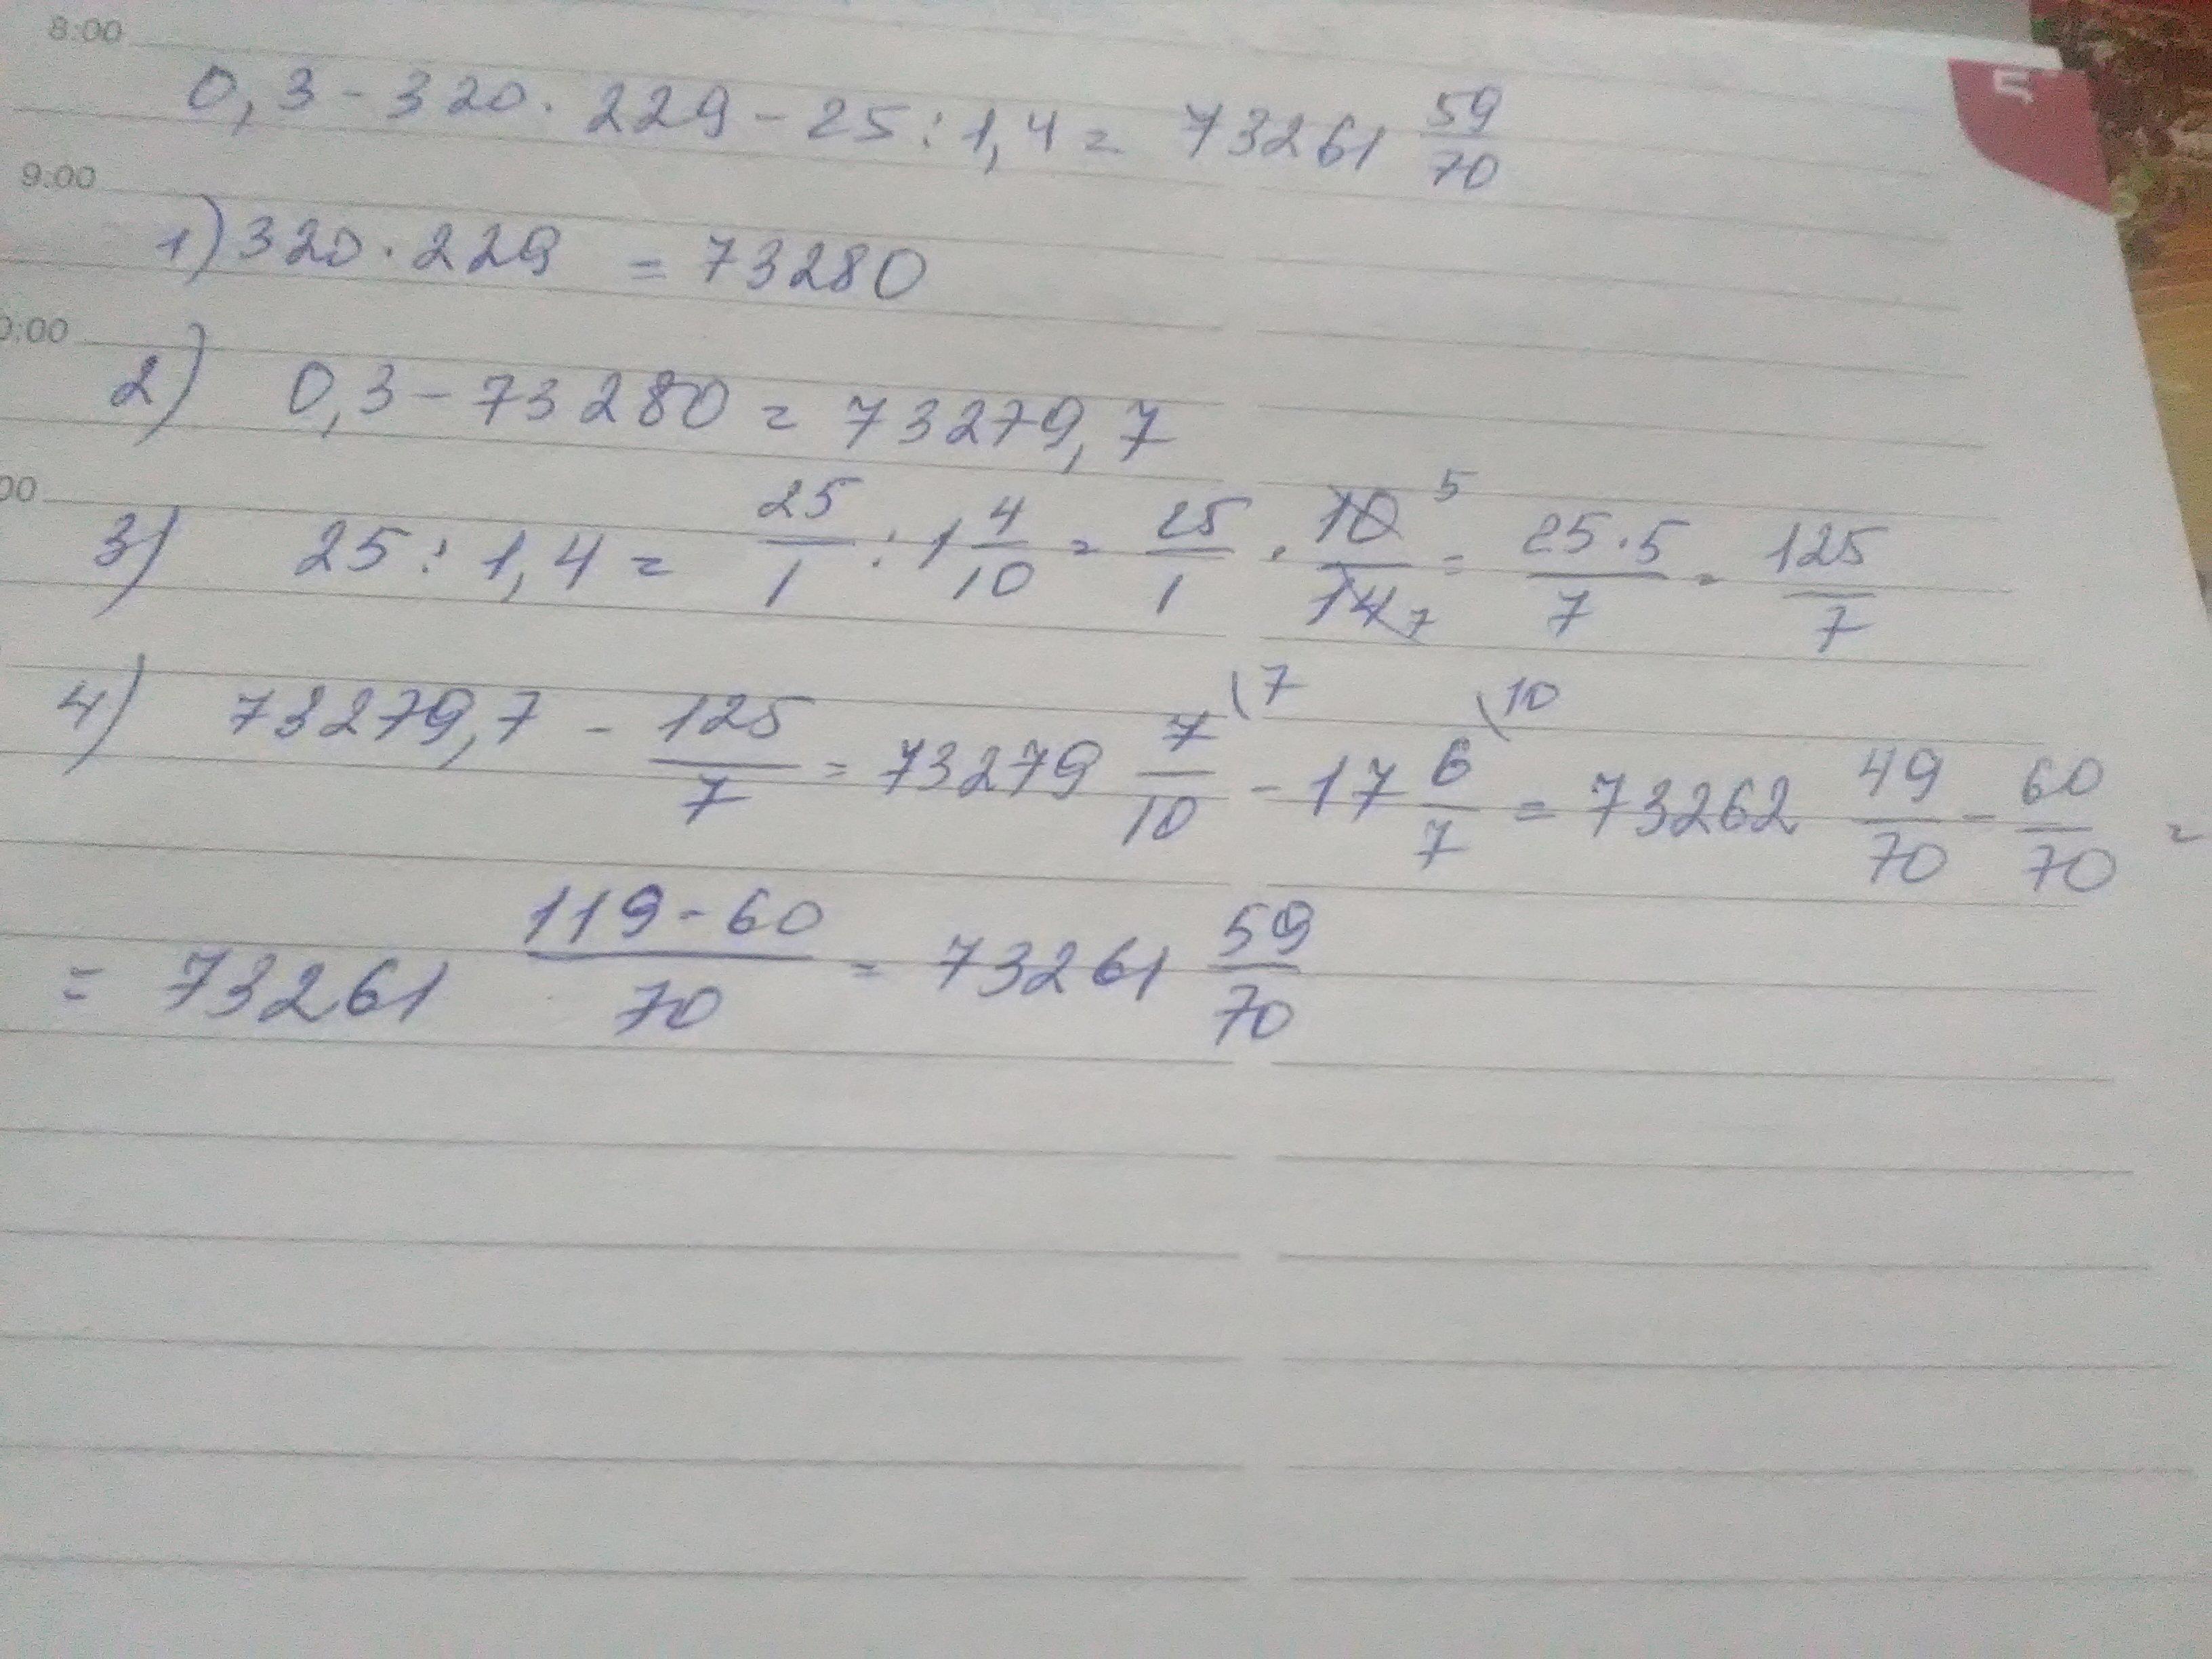 8:00
0,3 - 320 · 229 - 25 : 1,4 = 73261 59/70
9:00
1) 320 · 229 = 73280
0:00
2) 0,3 - 73280 = 73279,7
00
3) 25 : 1,4 = 25/1 : 1 4/10 = 25/1 · 10/14 5 7 = 25·5/7 = 125/7
4) 73279,7 - 125/7 = 73279 7/10 \7 - 17 6/7 \10 = 73262 49/70 - 60/70 =
= 73261 119-60/70 = 73261 59/70